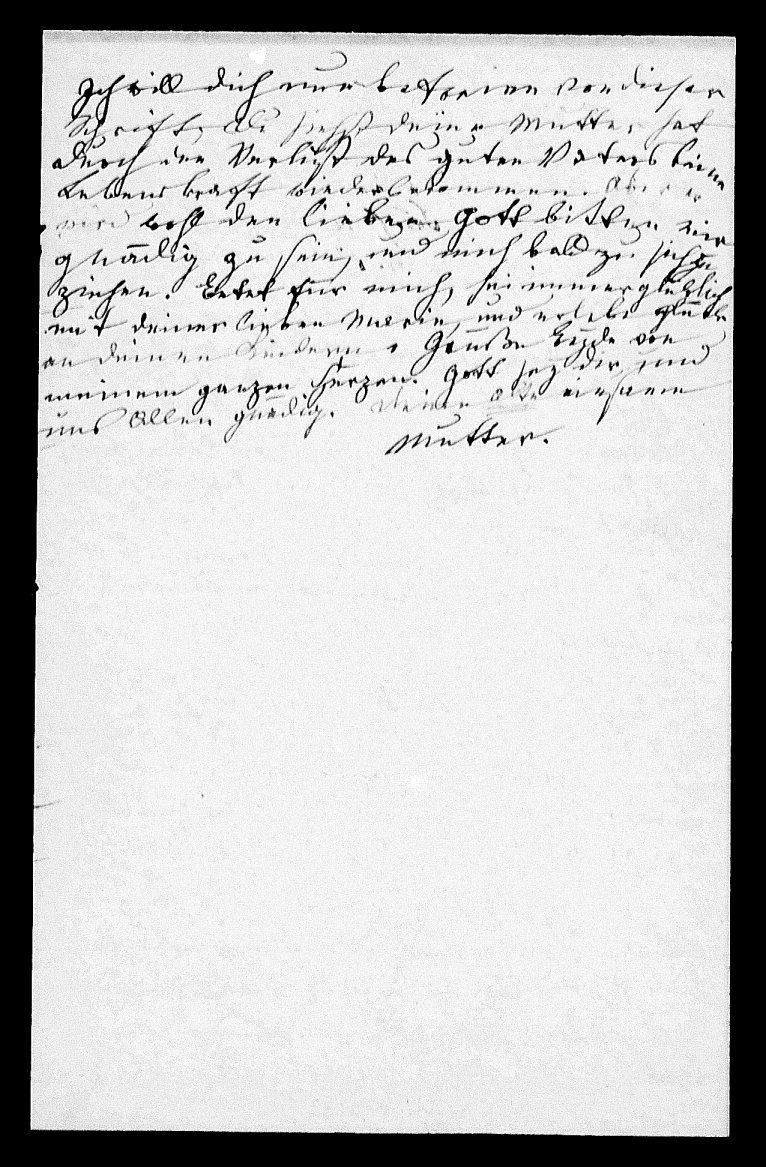 Ich will dich nur befreien von dieser
Schrift, du siehst deine Mutter hat
durch den Verlust des guten Vaters keine
Lebenskraft wiederbekommen. Aber er
wird wohl den lieben Gott bitten mir
gnädig zu sein, und mich bald zu sich zu
ziehen. Betet für mich, sei immer glücklich
mit deiner lieben Marie, und erlebe Glück
an deinen Kindern, Grüße beyde von
meinem ganzen Herzen. Gott sey dir und
uns Allen gnädig. Deine alte einsame
Mutter.